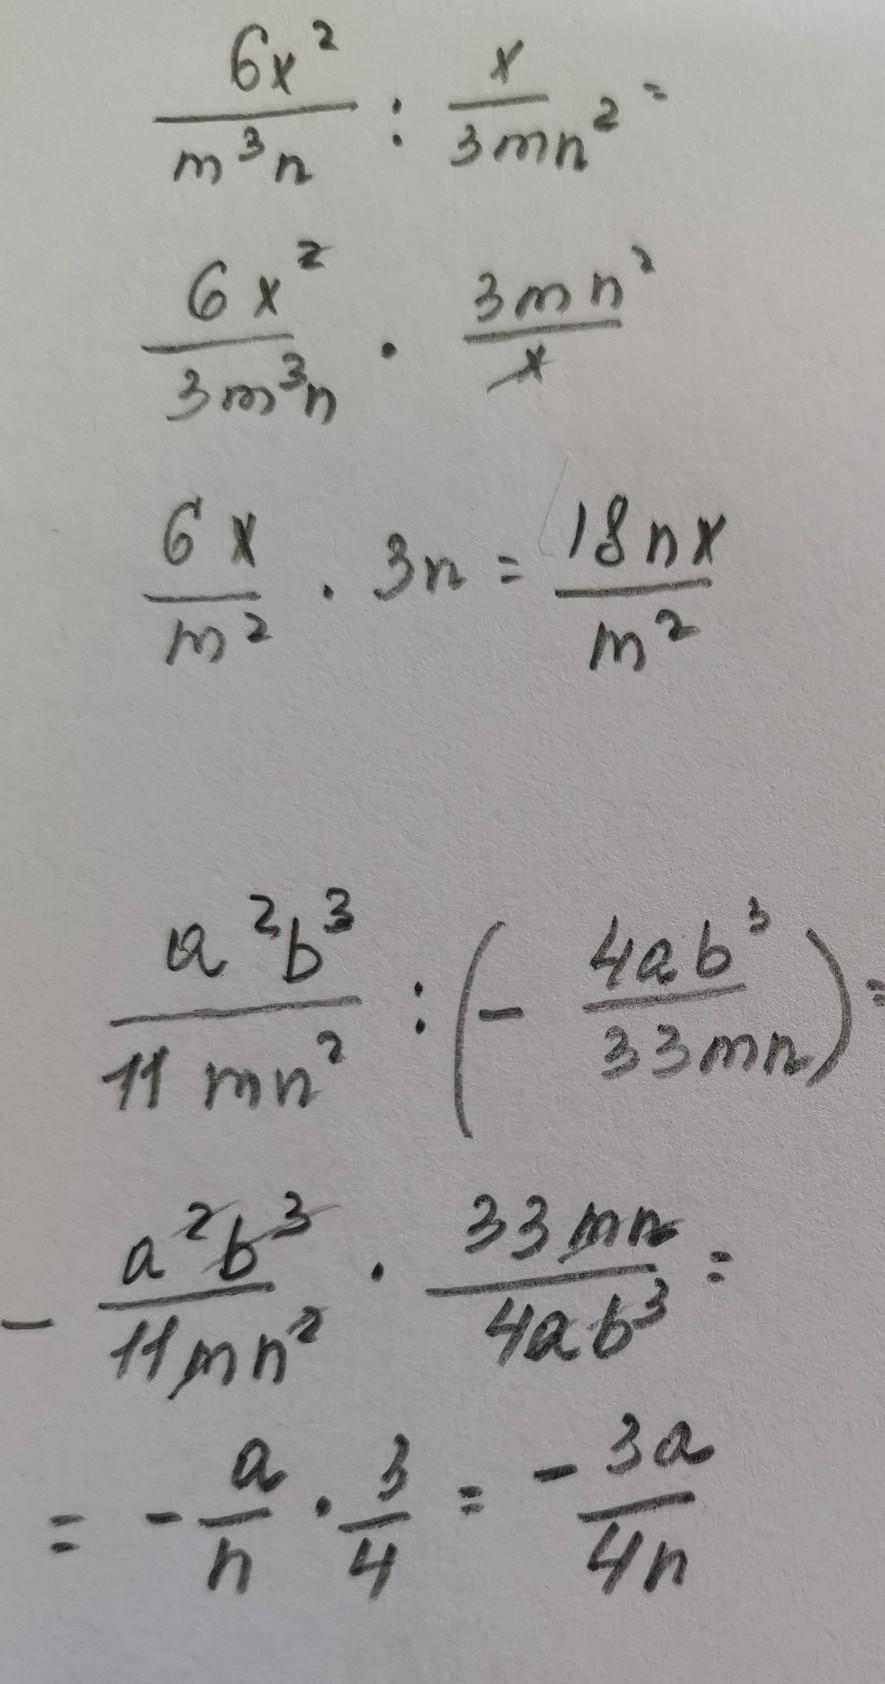 6x² / m³n : x / 3mn² =
6x² / 3m³n · 3mn² / x
6x / m² · 3n = 18nx / m²
a²b³ / 11mn² : (- 4ab³ / 33mn) =
- a²b³ / 11mn² · 33mn / 4ab³ =
= - a / n · 3 / 4 = - 3a / 4n